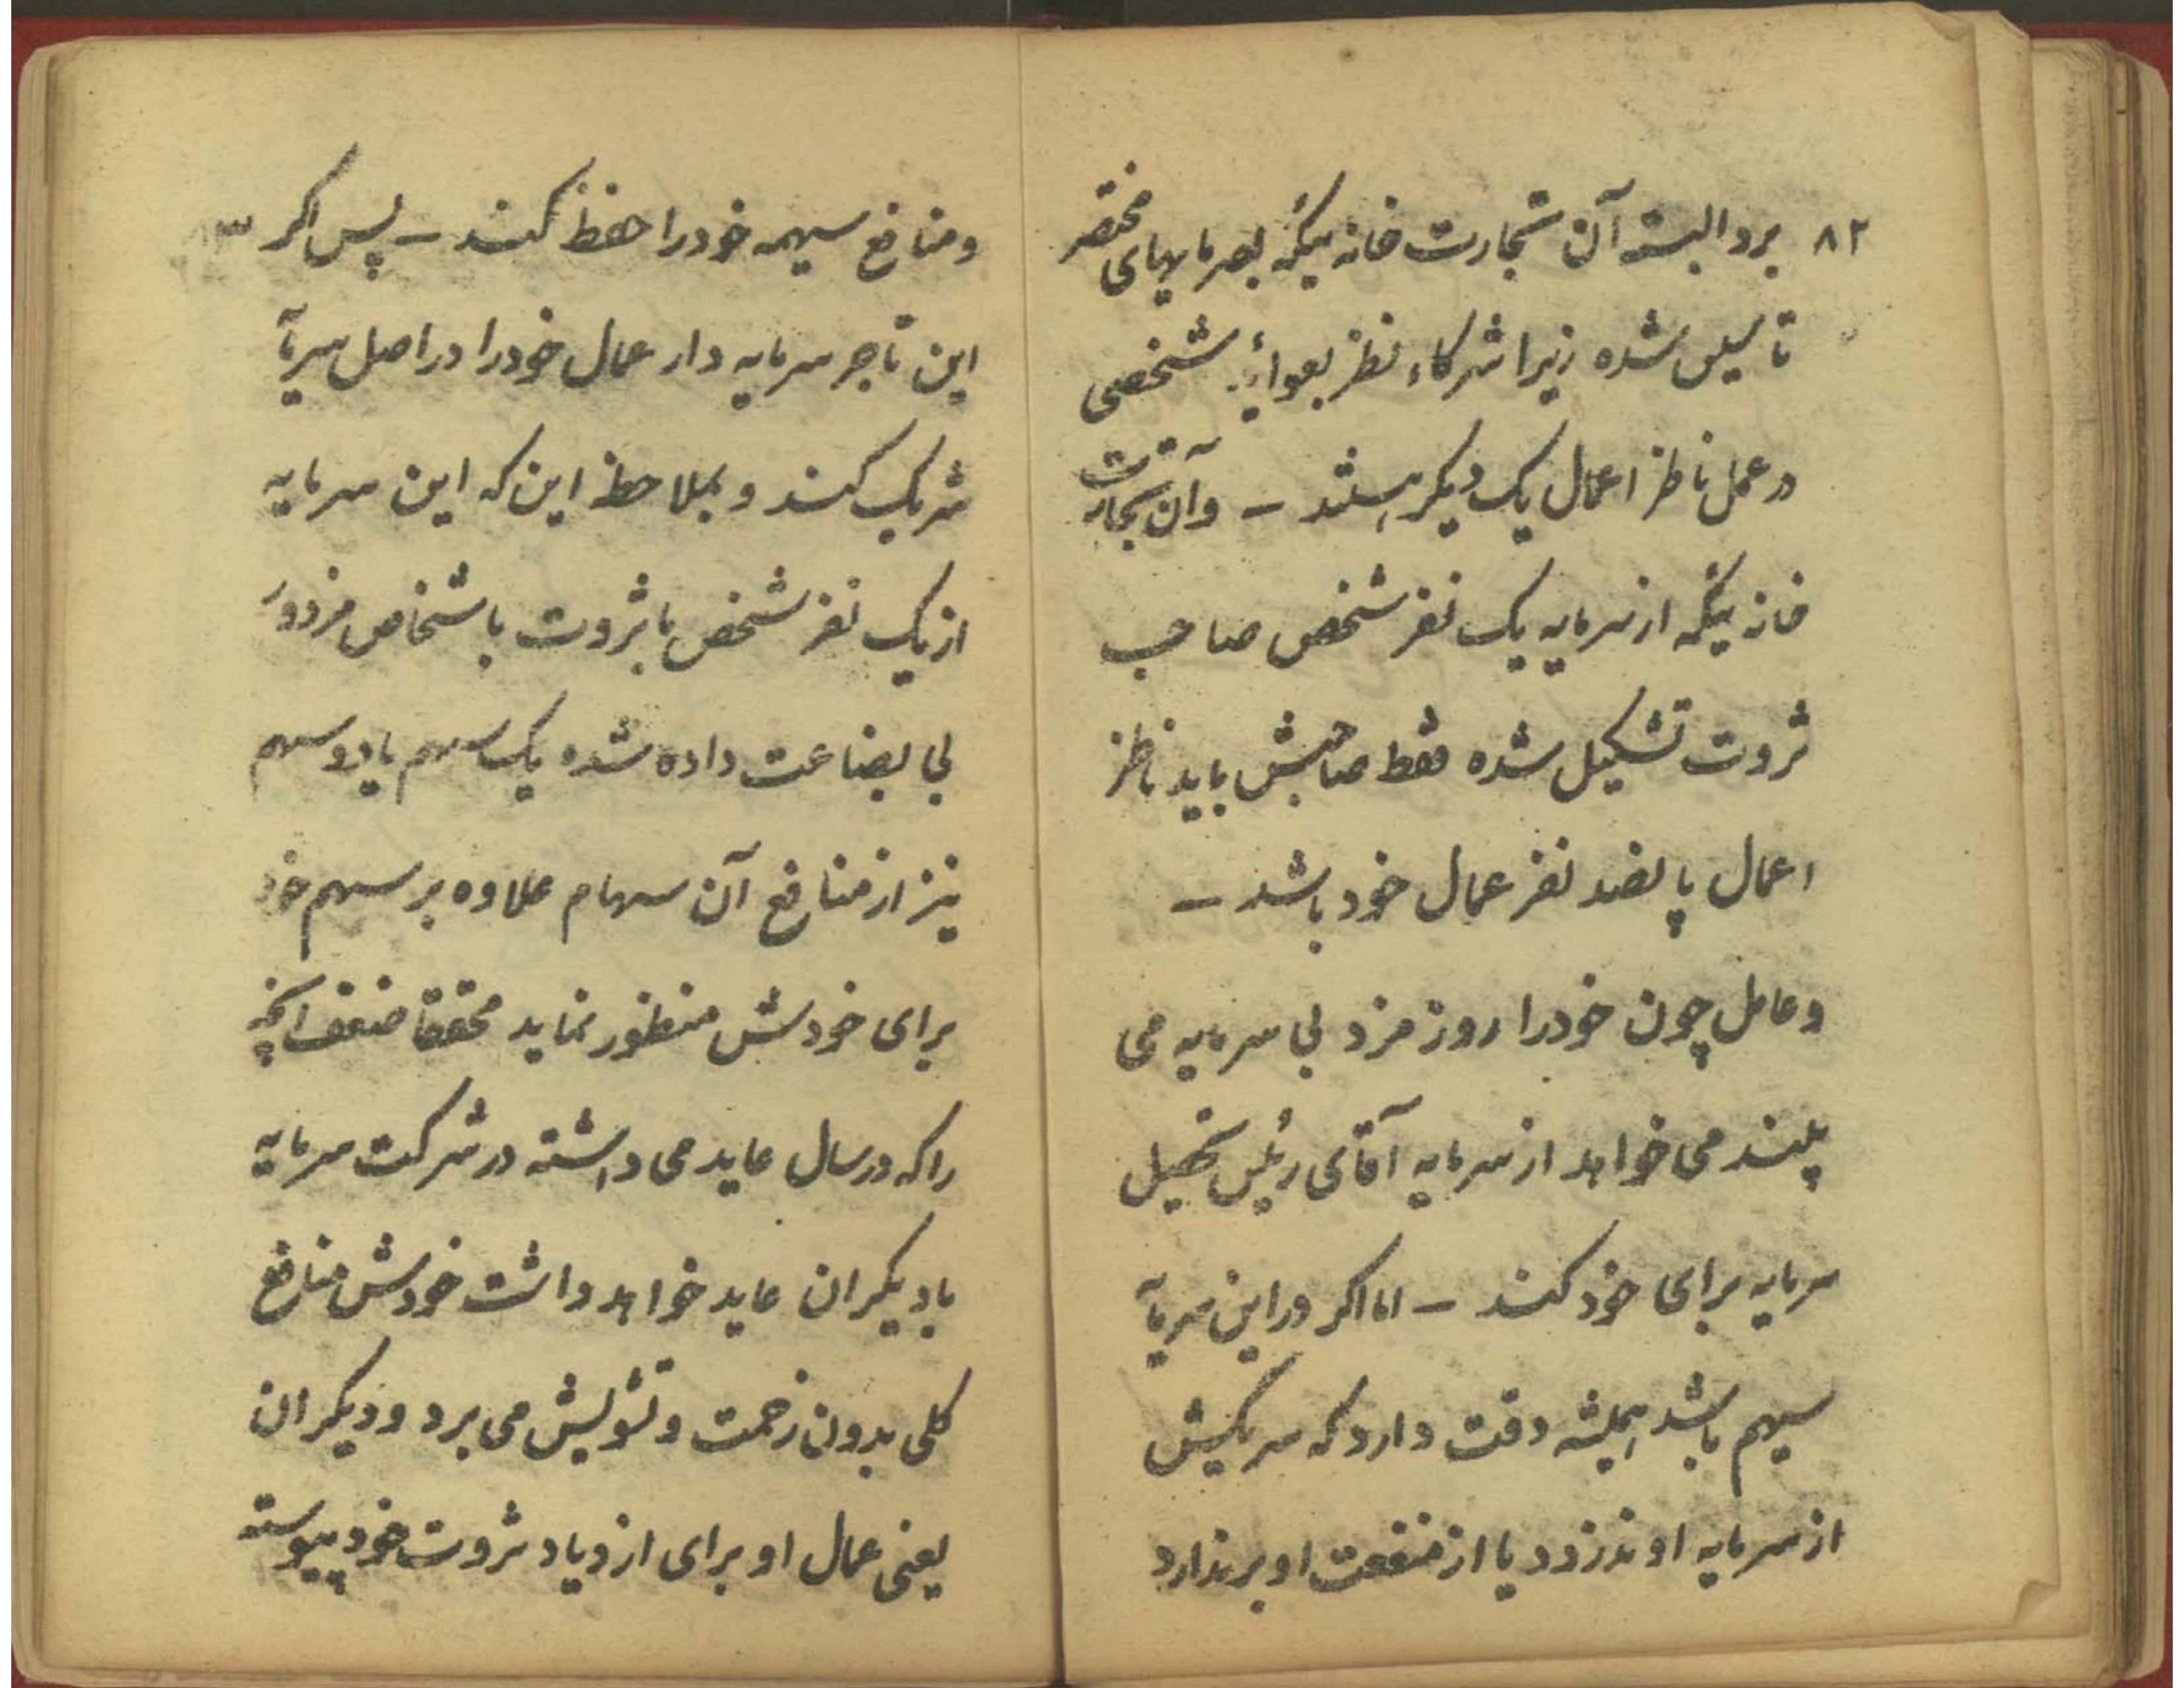 ۸۲ برد البته آن تجارت خانه‌ئیکه بسرمایهای مختصر
تأسیس شده زیرا شرکاء نظر بعوائد شخصی
در عمل ناظر اعمال یک دیگر هستند – و آن تجارت
خانه‌ئیکه از سرمایه یک نفر شخص صاحب
ثروت تشکیل شده فقط صاحبش باید ناظر
اعمال پانصد نفر عمال خود باشد –
و عامل چون خود را روز مزد بی سرمایه می
بیند می خواهد از سرمایه آقای رئیس تحصیل
سرمایه برای خود کند – اما اکر در این سرمایه
سهیم باشد همیشه دقت دارد که شریکش
از سرمایه او ندزدد یا از منفعت او برندارد
و منافع سهمیه خود را حفظ کند – پس اکر
این تاجر سرمایه دار عمال خود را در اصل سرمایه
شریک کند و بملاحظه این که این سرمایه
از یک نفر شخص با ثروت باشخاص مزدور
بی بضاعت داده شده یک سهم یا دو سهم
نیز از منافع آن سهام علاوه بر سهم خود
برای خودش منظور نماید محققا ضعف آنچه
را که در سال عاید می داشته در شرکت سرمایه
با دیکران عاید خواهد داشت خودش منافع
کلی بدون زحمت و تشویش می برد و دیکران
یعنی عمال او برای ازدیاد ثروت خود پیوسته